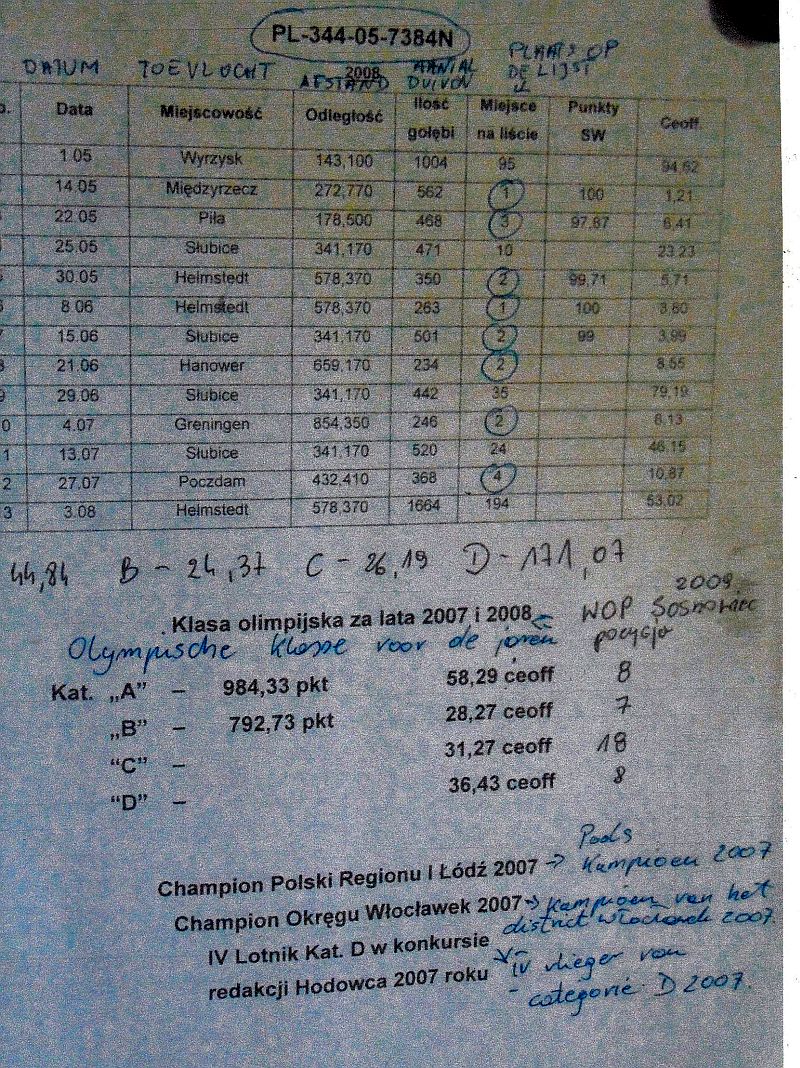 PL-344-05-7384N
DATUM TOEVLUCHT 2008 AFSTAND AANTAL DUIVON PLAATS OP DE LIJST
Data Miejscowość Odległość Ilość gołębi Miejsce na liście Punkty SW Ceoff.
1.05 Wyrzysk 143,100 1004 95 94,62
14.05 Międzyrzecz 272,770 562 1 100 1,21
22.05 Piła 178,500 468 3 97,87 6,41
25.05 Słubice 341,170 471 10 23,23
30.05 Helmstedt 578,370 350 2 99,71 5,71
8.06 Helmstedt 578,370 263 1 100 3,80
15.06 Słubice 341,170 501 2 99 3,99
21.06 Hanower 659,170 234 2 8,55
29.06 Słubice 341,170 442 35 79,19
0 4.07 Greningen 854,350 246 2 8,13
1 13.07 Słubice 341,170 520 24 46,15
2 27.07 Poczdam 432,410 368 4 10,87
3 3.08 Helmstedt 578,370 1664 194 53,02
44,84 B - 24,37 C - 26,19 D - 171,07
2009
Klasa olimpijska za lata 2007 i 2008 WOP Sosnowiec
Olympische klasse voor de jaren pozycja
Kat. „A” – 984,33 pkt 58,29 ceoff 8
„B” – 792,73 pkt 28,27 ceoff 7
“C” – 31,27 ceoff 18
“D” – 36,43 ceoff 8
Pools
Champion Polski Regionu I Łódź 2007 → Kampioen 2007
Champion Okręgu Włocławek 2007 → kampioen van het
district Włocławek 2007.
IV Lotnik Kat. D w konkursie
redakcji Hodowca 2007 roku - IV vlieger van
- categorie D 2007.